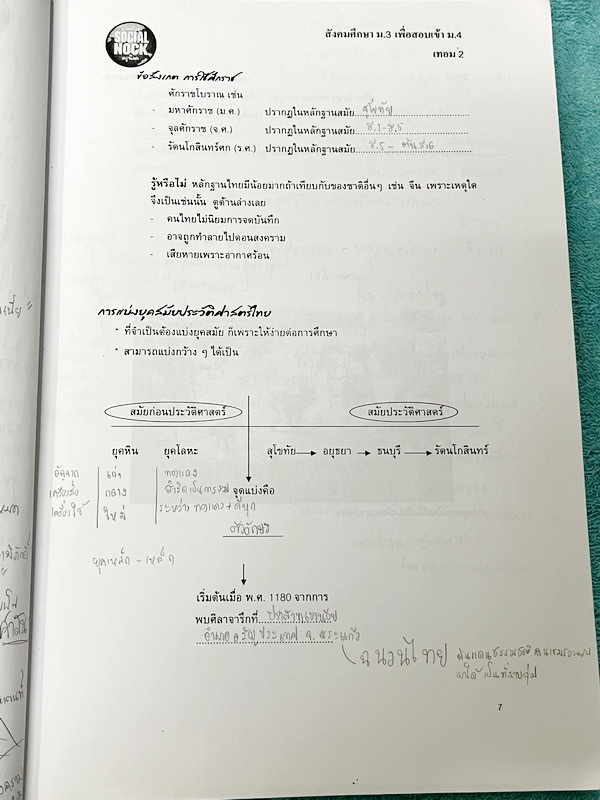 SOCIAL
NOCK
ครูน็อค
สังคมศึกษา ม.3 เพื่อสอบเข้า ม.4
เทอม 2
ข้อสังเกต การใช้ศักราช
ศักราชโบราณ เช่น
- มหาศักราช (ม.ศ.) ปรากฏในหลักฐานสมัย สุโขทัย
- จุลศักราช (จ.ศ.) ปรากฏในหลักฐานสมัย ร.1-ร.5
- รัตนโกสินทร์ศก (ร.ศ.) ปรากฏในหลักฐานสมัย ร.5 - ต้นร.6
รู้หรือไม่ หลักฐานไทยมีน้อยมากถ้าเทียบกับของชาติอื่นๆ เช่น จีน เพราะเหตุใด
จึงเป็นเช่นนั้น ดูด้านล่างเลย
- คนไทยไม่นิยมการจดบันทึก
- อาจถูกทำลายไปตอนสงคราม
- เสียหายเพราะอากาศร้อน
การแบ่งยุคสมัยประวัติศาสตร์ไทย
* ที่จำเป็นต้องแบ่งยุคสมัย ก็เพราะให้ง่ายต่อการศึกษา
* สามารถแบ่งกว้าง ๆ ได้เป็น
สมัยก่อนประวัติศาสตร์ สมัยประวัติศาสตร์
ยุคหิน ยุคโลหะ สุโขทัย อยุธยา ธนบุรี รัตนโกสินทร์
เก่า ทองแดง
กลาง สำริด จุดแบ่งคือ
เครื่องใช้ ใหม่ ระหว่าง ทองแดง+ดีบุก
ตัวอักษร
ยุคเหล็ก - เหล็ก
เริ่มต้นเมื่อ พ.ศ. 1180 จากการ
พบศิลาจารึกที่ ปราสาทเขาน้อย
อำเภออรัญประเทศ จ. สระแก้ว
ฉนวนไทย
7